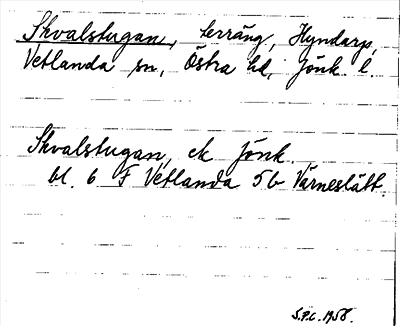 Skvalstugan, terräng, Hyndarp,
Vetlanda sn, Östra hd, Jönk l
Skvalstugan, ek Jönk
bl. 6 F Vetlanda 5b Värneslätt.
S.P.C. 1958.